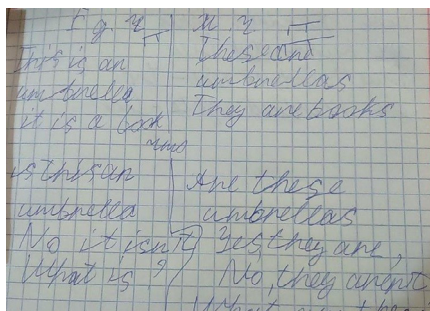 This is an
umbrella
it is a book
is this an
umbrella
No it isn't
What is ?
These are
umbrellas
They are books
Are these
umbrellas
Yes they are,
No, they aren't
What are